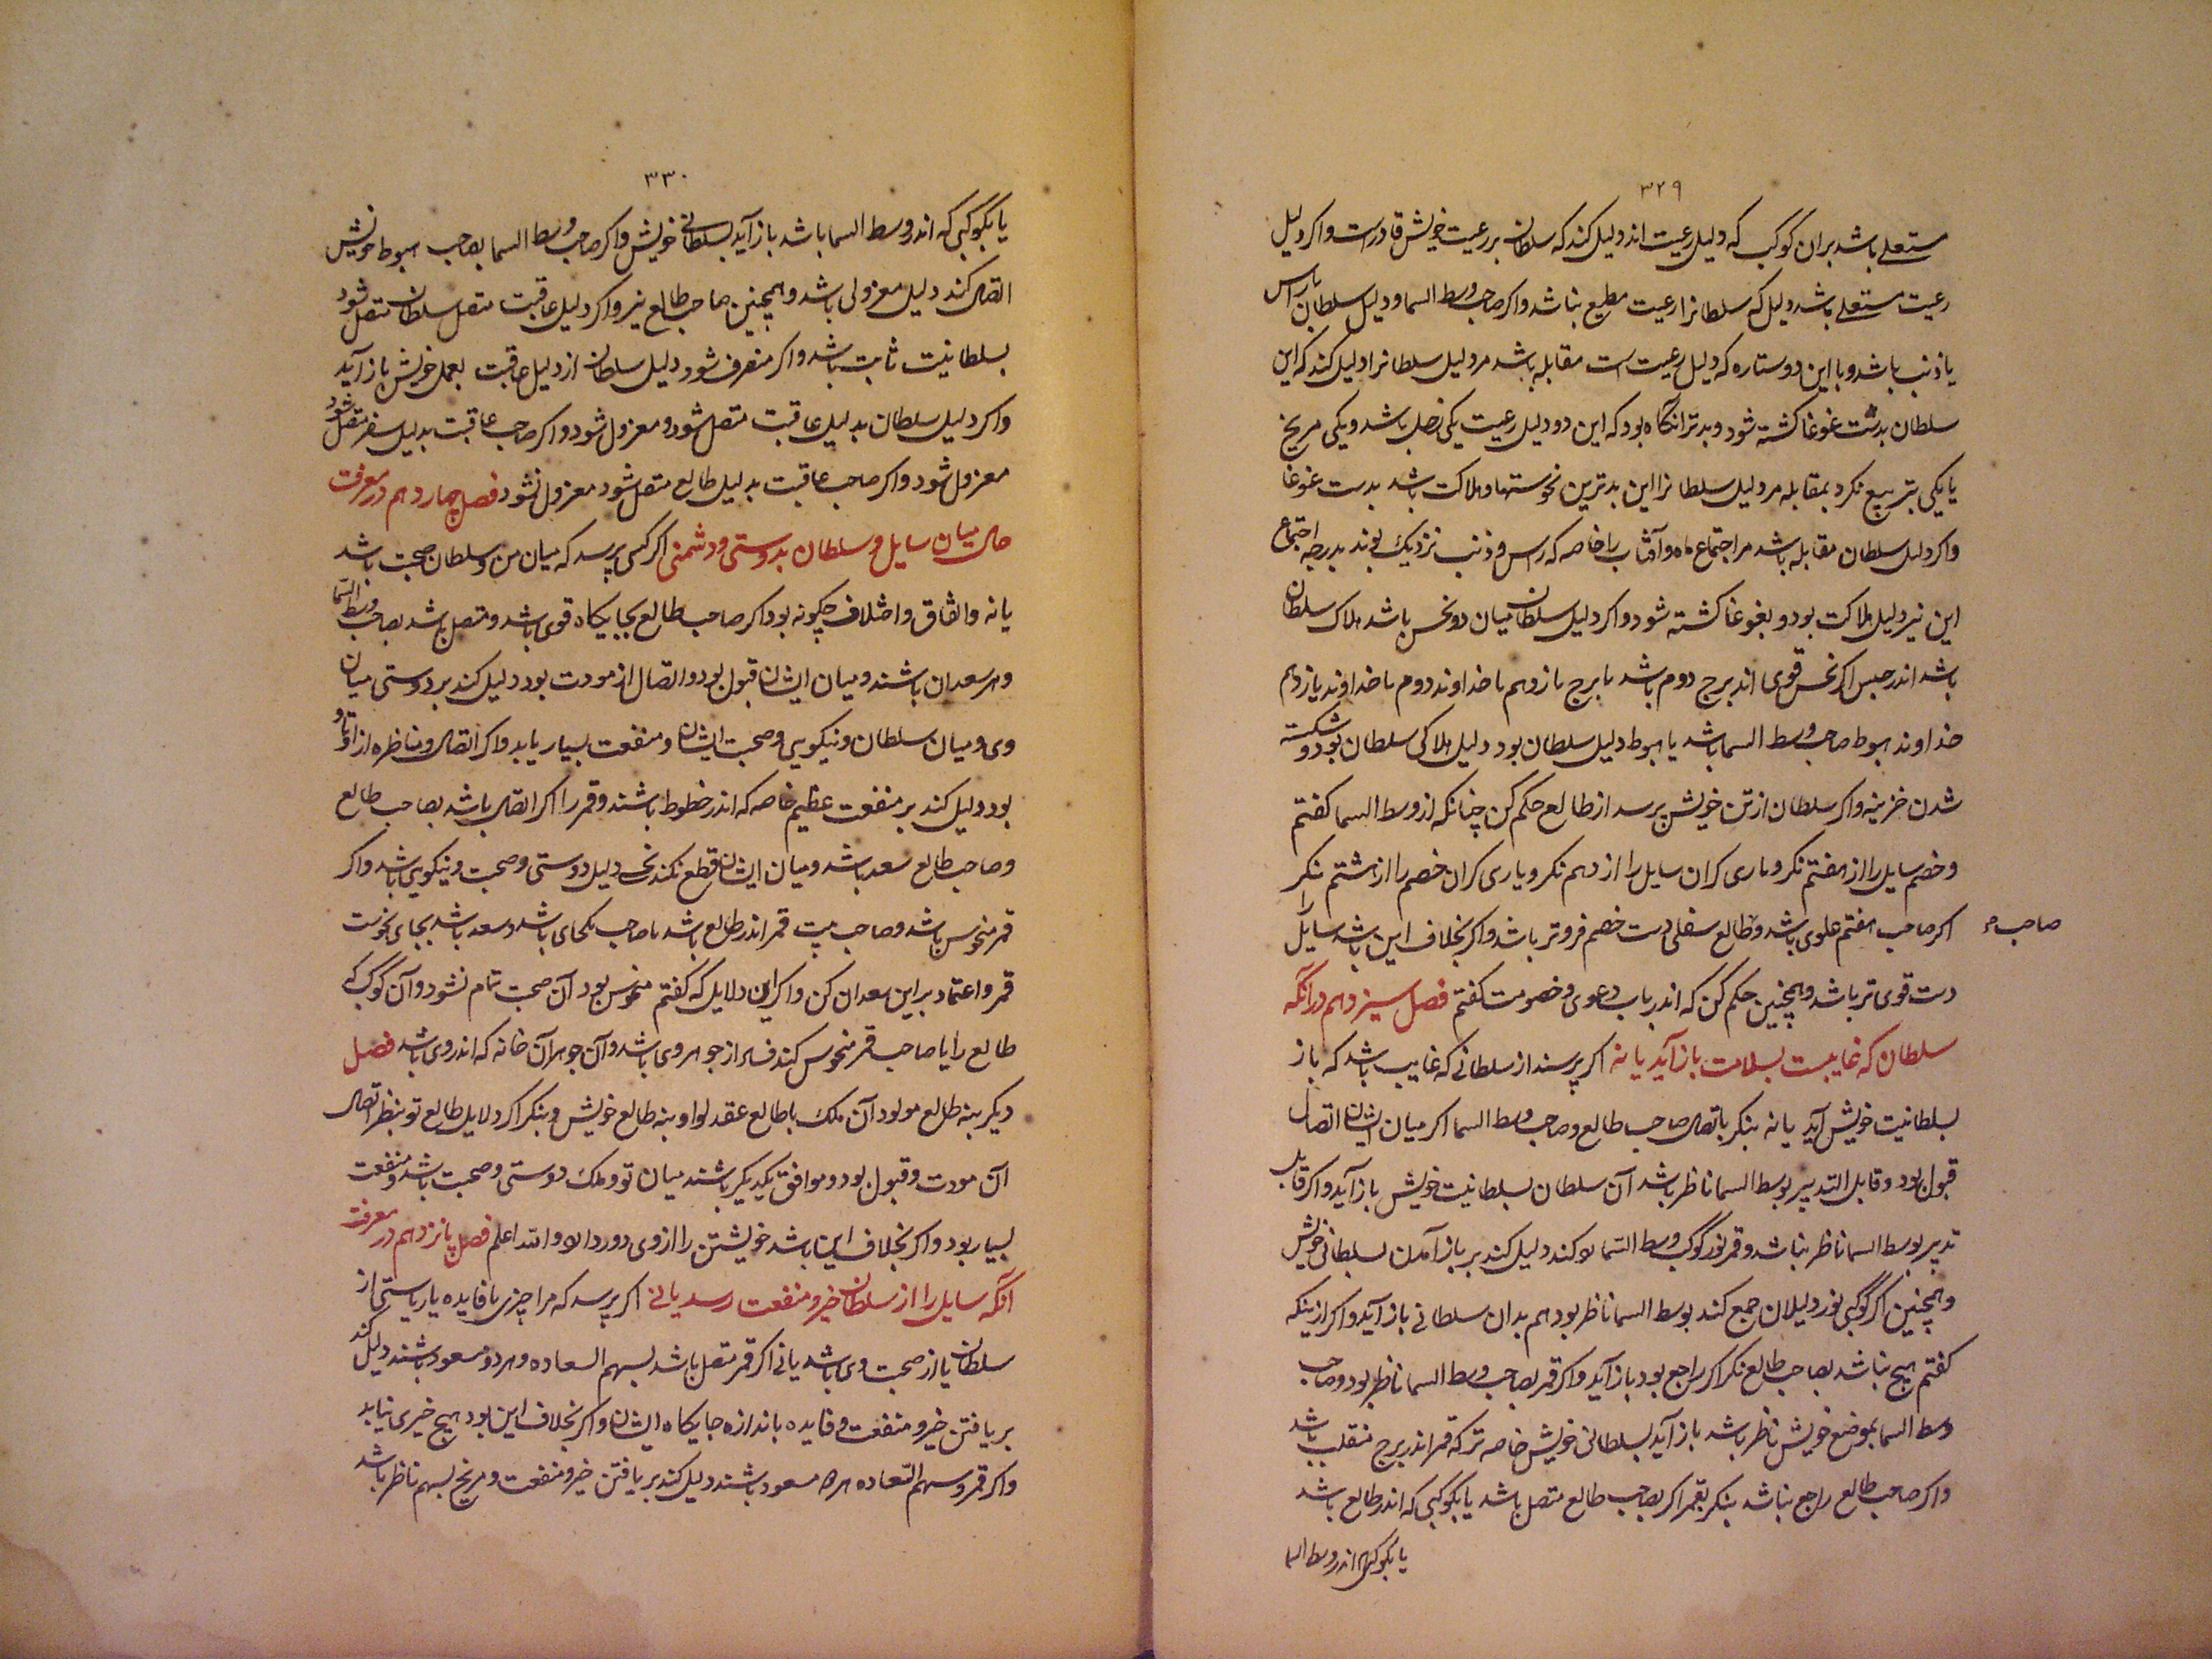 ۳۲۹
مستعلی باشد بران کوکب که دلیل رعیت اند دلیل کند که سلطان بر رعیت خویش قادرست واکر دلیل
رعیت مستعلی باشد دلیل که سلطانرا رعیت مطیع نباشد واکر صاحب وسط السما و دلیل سلطان باراس
یا ذنب باشد و با این دو ستاره که دلیل رعیت است مقابله باشد مر دلیل سلطانرا دلیل کند که این
سلطان بدست غوغا کشته شود و بدتر انکاه بود که این دو دلیل رعیت یکی زحل باشد و یکی مریخ
یا یکی بتربیع نکرد بمقابله مر دلیل سلطانرا این بدترین نحوستها و هلاکت باشد بدست غوغا
واکر دلیل سلطان مقابله باشد مر اجتماع ماه و آفتاب را خاصه که راس و ذنب نزدیک بوند بدرجه اجتماع
این نیز دلیل هلاکت بود و بغوغا کشته شود واکر دلیل سلطان میان دو نحس باشد هلاک سلطان
باشد اندر حبس اکر نحس قوی اندر برج دوم باشد یا برج یازدهم یا خداوند دوم یا خداوند یازدهم
خداوند هبوط صاحب وسط السما باشد یا هبوط دلیل سلطان بود دلیل هلاکی سلطان بود و شکسته
شدن خزینه واکر سلطان از تن خویش پرسد از طالع حکم کن چنانکه از وسط السما کفتم
و خصم سایل را از هفتم نکر و یاری کران سایل را از دهم نکر و یاری کران خصم را از هشتم نکر
اکر صاحب هفتم علوی باشد و طالع سفلی دست خصم فروتر باشد واکر بخلاف این باشد سایل را
صاحب
دست قوی تر باشد و همچنین حکم کن که اندر باب دعوی و خصومت کفتم فصل سیزدهم در انکه
سلطان که غایبست بسلامت باز آید یا نه اکر پرسند از سلطانی که غایب باشد که باز
بسلطانیت خویش آید یا نه بنکر باتصال صاحب طالع و صاحب وسط السما اکر میان ایشان اتصال
قبول بود و قابل التدبیر بوسط السما ناظر باشد آن سلطان بسلطانیت خویش باز آید واکر قابل
تدبیر بوسط السما ناظر نباشد و قمر نور کوکب وسط السما کند دلیل کند بر باز آمدن بسلطانی خویش
و همچنین اکر کوکبی نور دلیلان جمع کند بوسط السما ناظر بود هم بدان سلطانی باز آید واکر ازینکه
کفتم هیچ نباشد بصاحب طالع نکر اکر راجع بود باز آید واکر قمر بصاحب وسط السما ناظر بود و صاحب
وسط السما بموضع خویش ناظر باشد باز آید بسلطانی خویش خاصه تر که قمر اندر برج منقلب باشد
واکر صاحب طالع راجع نباشد بنکر بقمر اکر بصاحب طالع متصل باشد یا بکوکبی که اندر طالع باشد
یا بکوکبی اندر وسط السما
۳۳۰
یا بکوکبی که اندر وسط السما باشد باز آید بسلطانی خویش واکر صاحب وسط السما بصاحب هبوط خویش
اتصال کند دلیل معزولی باشد و همچنین صاحب طالع نیز واکر دلیل عاقبت متصل سلطان متصل شود
بسلطانیت ثابت باشد واکر منصرف شود دلیل سلطان از دلیل عاقبت بعمل خویش باز آید
واکر دلیل سلطان بدلیل عاقبت متصل شود و معزول شود واکر صاحب عاقبت بدلیل سفر متصل شود
معزول شود واکر صاحب عاقبت بدلیل طالع متصل شود معزول نشود فصل چهاردهم در معرفت
حال میان سایل و سلطان بدوستی و دشمنی اکر کسی پرسد که میان من و سلطان صحبت باشد
یا نه واتفاق واختلاف چکونه بود اکر صاحب طالع بجایکاه قوی باشد و متصل باشد بصاحب وسط السما
و هر سعدان باشند و میان ایشان قبول بود و اتصال از مودت بود دلیل کند بر دوستی میان
وی و میان سلطان و نیکویی و صحبت ایشان و منفعت بسیار یابد واکر اتصال و مناظره از اوتاد
بود دلیل کند بر منفعت عظیم خاصه که اندر خطوط باشند و قمر را اکر اتصال باشد بصاحب طالع
و صاحب طالع سعد باشد و میان ایشان قطع نکند نحس دلیل دوستی و صحبت و نیکویی باشد واکر
قمر منحوس باشد و صاحب بیت قمر اندر طالع باشد یا صاحب یکجای باشد و سعد باشد بجای نحوست
قمر و اعتماد بر این سعدان کن واکر این دلایل که کفتم منحوس بود آن صحبت تمام نشود و آن کوکب که
طالع را یا صاحب قمر منحوس کند فساد از جوهر وی باشد و آن جوهر آن خانه که اندر وی باشد فصل
دیکر بنه طالع مولود آن ملک با طالع عقد لوا و بنه طالع خویش و بنکر اکر دلایل طالع تو بنظر اتصال
آن مودت و قبول بود و موافق یکدیکر باشند میان تو و ملک دوستی و صحبت باشد و منفعت
بسیار بود واکر بخلاف این باشد خویشتن را از وی دور دار والله اعلم فصل پانزدهم در معرفت
آنکه سایل را از سلطان خیر و منفعت رسد یا نی اکر پرسد که مرا چیزی یا فایده یا ریاستی از
سلطان یا از صحبت وی باشد یا نی اکر قمر متصل باشد بسهم السعاده و هر دو مسعود باشند دلیل کند
بر یافتن خیر و منفعت و فایده باندازه جایکاه ایشان واکر بخلاف این بود هیچ خیری نیابد
واکر قمر و سهم السعاده هر دو مسعود باشند دلیل کند بر یافتن خیر و منفعت و مریخ بسهم ناظر باشد